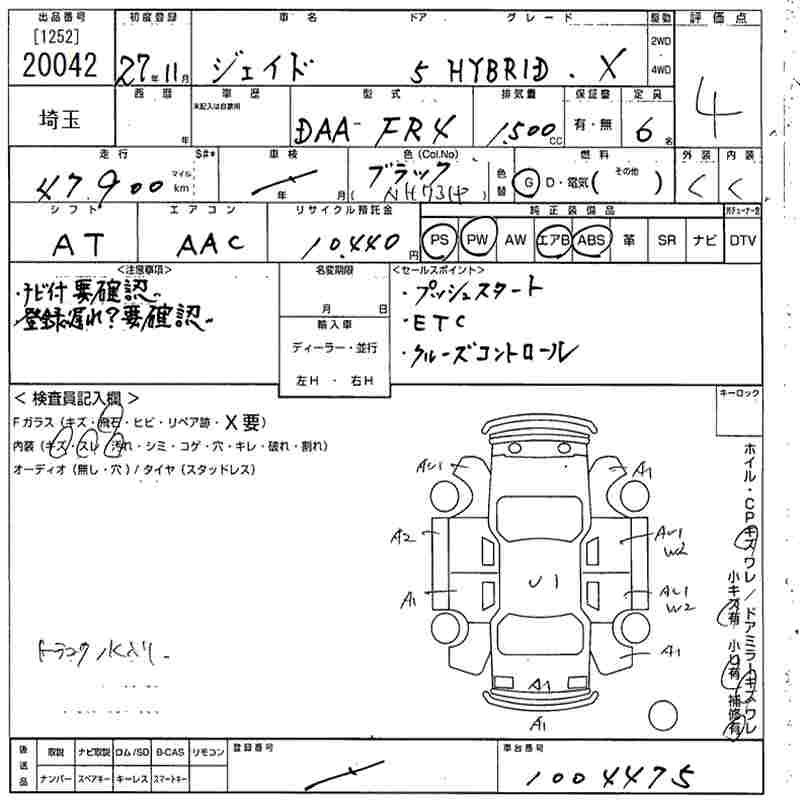 出品番号 初度登録 車名 ドア グレード 駆動 評価点
[1252]
20042 27年11月 ジェイド 5 HYBRID . X 2WD・4WD 4
埼玉 西暦 年 車歴 未記入は自家用 型式 排気量 保証書 定員
DAA-FR4 1,500cc 有・無 6名
走行 S#* 車検 色(Col.No) 色替 燃料 外装 内装
47,900 マイル km 年 月 ブラック (NH731P) G D・電気( その他 ) C C
シフト エアコン リサイクル預託金 純正装備品
AT AAC 10,440円 PS PW AW エアB ABS 革 SR ナビ DTV
<注意事項> 名変期限 <セールスポイント>
・ナビ付要確認。 月 日 ・プッシュスタート
・登録遅れ?要確認。 輸入車 ・ETC
ディーラー・並行 ・クルーズコントロール
左H・右H
<検査員記入欄> キーロック
Fガラス(キズ・飛石・ヒビ・リペア跡・X要)
内装(キズ・スレ・汚れ・シミ・コゲ・穴・キレ・破れ・割れ)
オーディオ(無し・穴)/タイヤ(スタッドレス)
ホイル・CPキズワレ/ドアミラーキズワレ
小キズ有 小凹有 補修有
AU1 A1
A2 AU1
W2
U1
A1 AU1
W2
A1
A1
A1
後送品 取説 ナビ取説 ロム/SD B-CAS リモコン 登録番号 車台番号
ナンバー スペアキー キーレス スマートキー 1004475